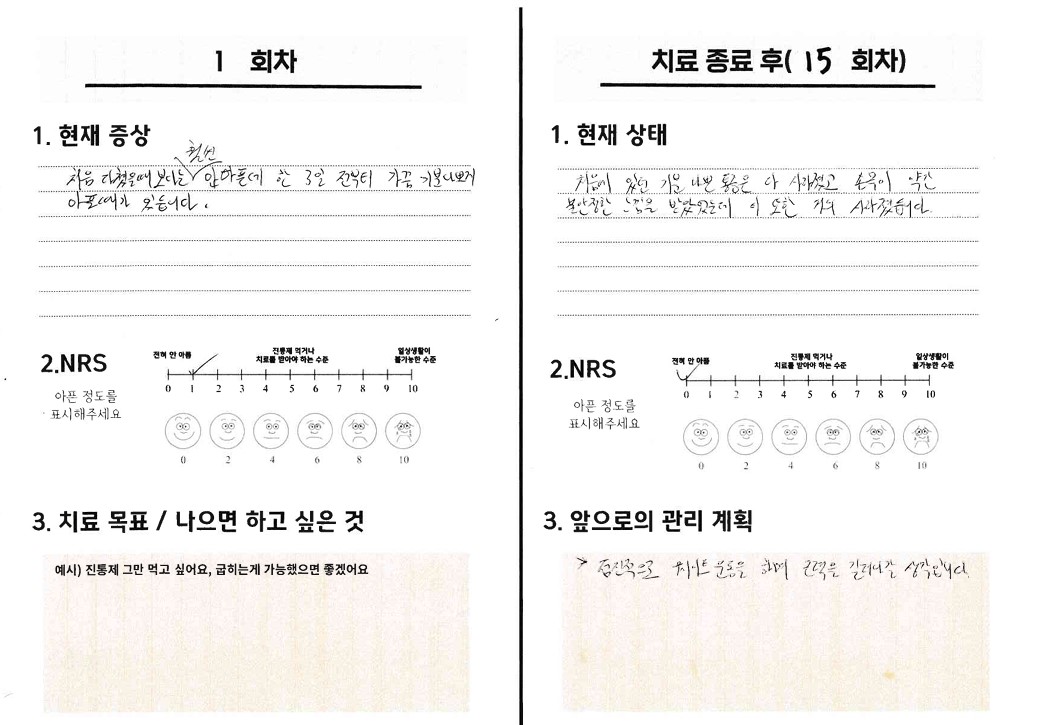 1 회차
1. 현재 증상
훨씬
처음 다쳤을때 보다는 안아픈데 한 3일 전부터 가끔 기분나쁘게
아플때가 있습니다.
2.NRS
아픈 정도를
표시해주세요
전혀 안 아픔
진통제 먹거나
치료를 받아야 하는 수준
일상생활이
불가능한 수준
0 1 2 3 4 5 6 7 8 9 10
0 2 4 6 8 10
3. 치료 목표 / 나으면 하고 싶은 것
예시) 진통제 그만 먹고 싶어요, 굽히는게 가능했으면 좋겠어요
치료 종료 후( 15 회차)
1. 현재 상태
처음에 있던 기분 나쁜 통증은 다 사라졌고 손목이 약간
불안정한 느낌을 받았었는데 이 또한 거의 사라졌습니다.
2.NRS
아픈 정도를
표시해주세요
전혀 안 아픔
진통제 먹거나
치료를 받아야 하는 수준
일상생활이
불가능한 수준
0 1 2 3 4 5 6 7 8 9 10
0 2 4 6 8 10
3. 앞으로의 관리 계획
점진적으로 웨이트 운동을 하며 근력을 길러나갈 생각입니다.